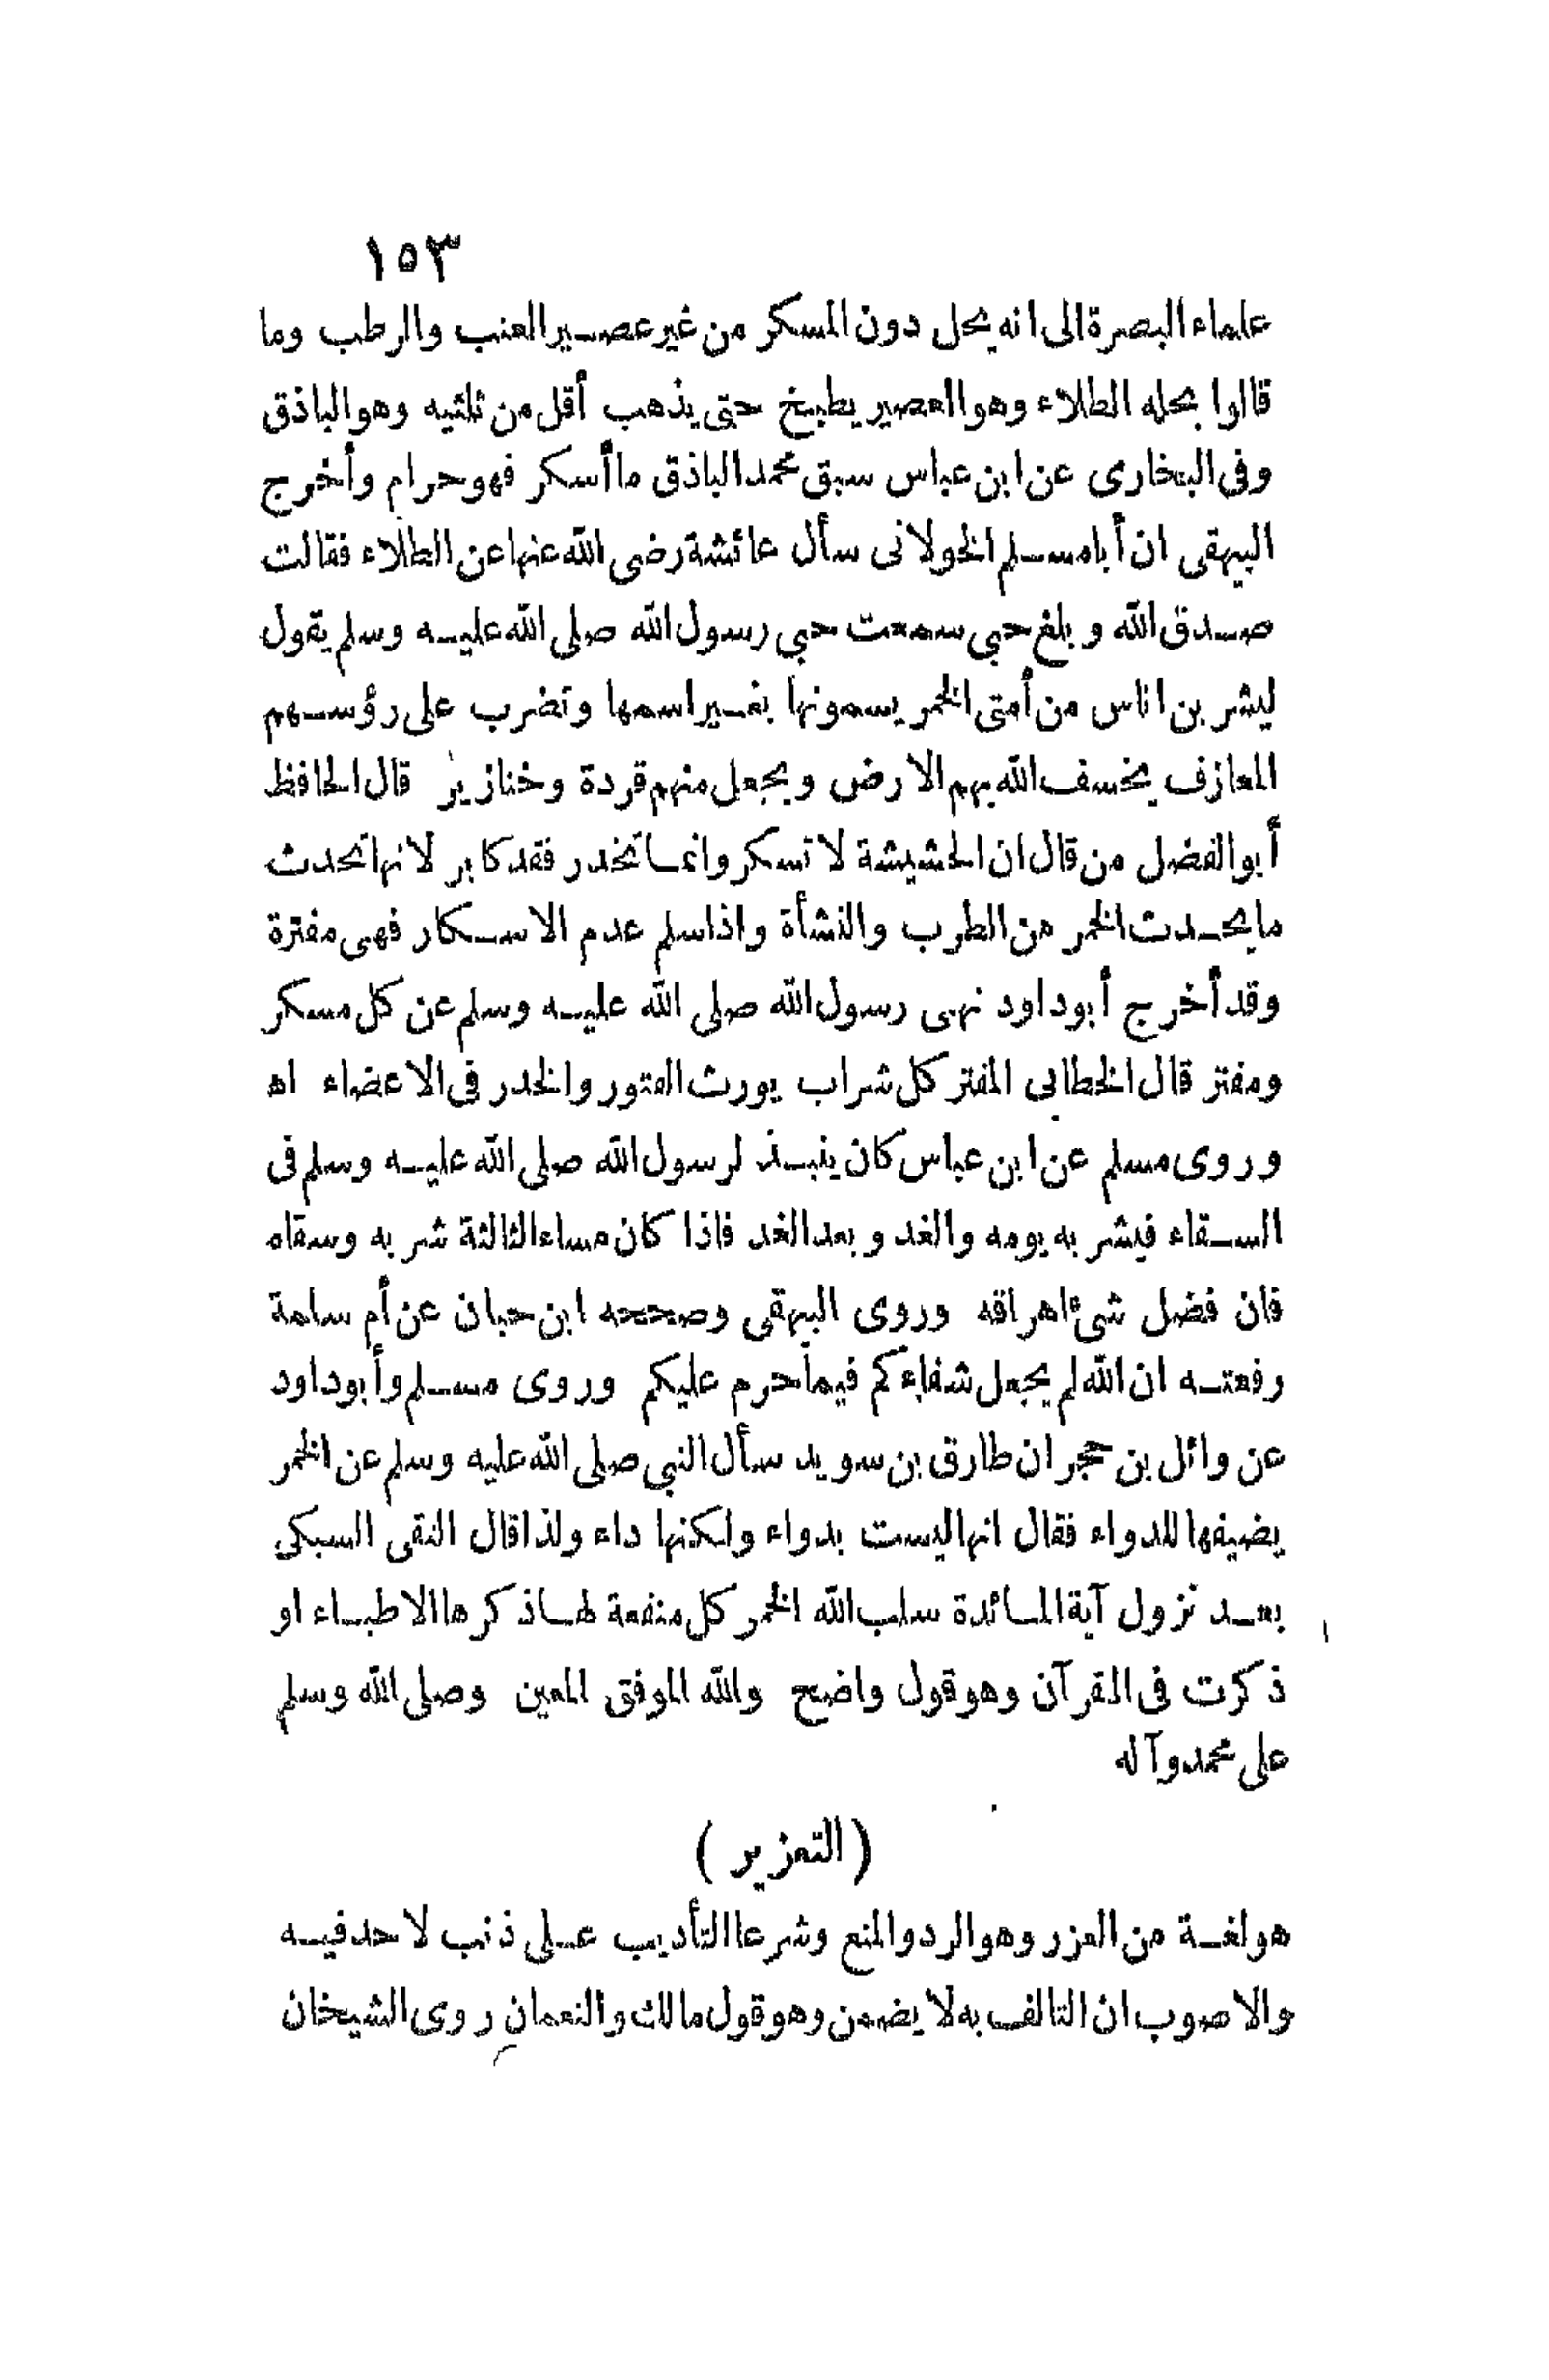 ١٥٣
علماء البصرة الى انه يحل دون المسكر من غير عصير العنب والرطب وما
قالوا بحله الطلاء وهو العصير يطبخ حتى يذهب أقل من ثلثيه وهو الباذق
وفى البخارى عن ابن عباس سبق محمد الباذق ما أسكر فهو حرام وأخرج
البيهقى ان أبا مسلم الخولانى سأل عائشة رضى الله عنها عن الطلاء فقالت
صدق الله وبلغ حبى سمعت حبى رسول الله صلى الله عليه وسلم يقول
ليشربن اناس من أمتى الخمر يسمونها بغير اسمها وتضرب على رؤسهم
المعازف يخسف الله بهم الارض ويجعل منهم قردة وخنازير قال الحافظ
أبو الفضل من قال ان الحشيشة لا تسكر وانما تخدر فقد كابر لانها تحدث
ما يحدث الخمر من الطرب والنشأة واذا سلم عدم الاسكار فهى مفترة
وقد أخرج أبو داود نهى رسول الله صلى الله عليه وسلم عن كل مسكر
ومفتر قال الخطابى المفتر كل شراب يورث الفتور والخدر فى الاعضاء اه
وروى مسلم عن ابن عباس كان ينبذ لرسول الله صلى الله عليه وسلم فى
السقاء فيشربه يومه والغد وبعد الغد فاذا كان مساء الثالثة شربه وسقاه
فان فضل شئ اهراقه وروى البيهقى وصححه ابن حبان عن أم سلمة
رفعته ان الله لم يجعل شفاءكم فيما حرم عليكم وروى مسلم وأبو داود
عن وائل بن حجر ان طارق بن سويد سأل النبى صلى الله عليه وسلم عن الخمر
يضيفها للدواء فقال انها ليست بدواء ولكنها داء ولذا قال التقى السبكى
بعد نزول آية المائدة سلب الله الخمر كل منفعة لها ذكرها الاطباء او
ذكرت فى القرآن وهو قول واضح والله الموفق المعين وصلى الله وسلم
على محمد وآله
(التعزير)
هو لغة من العزر وهو الرد والمنع وشرعا التأديب على ذنب لا حد فيه
والاصوب ان التالف به لا يضمن وهو قول مالك والنعمان روى الشيخان